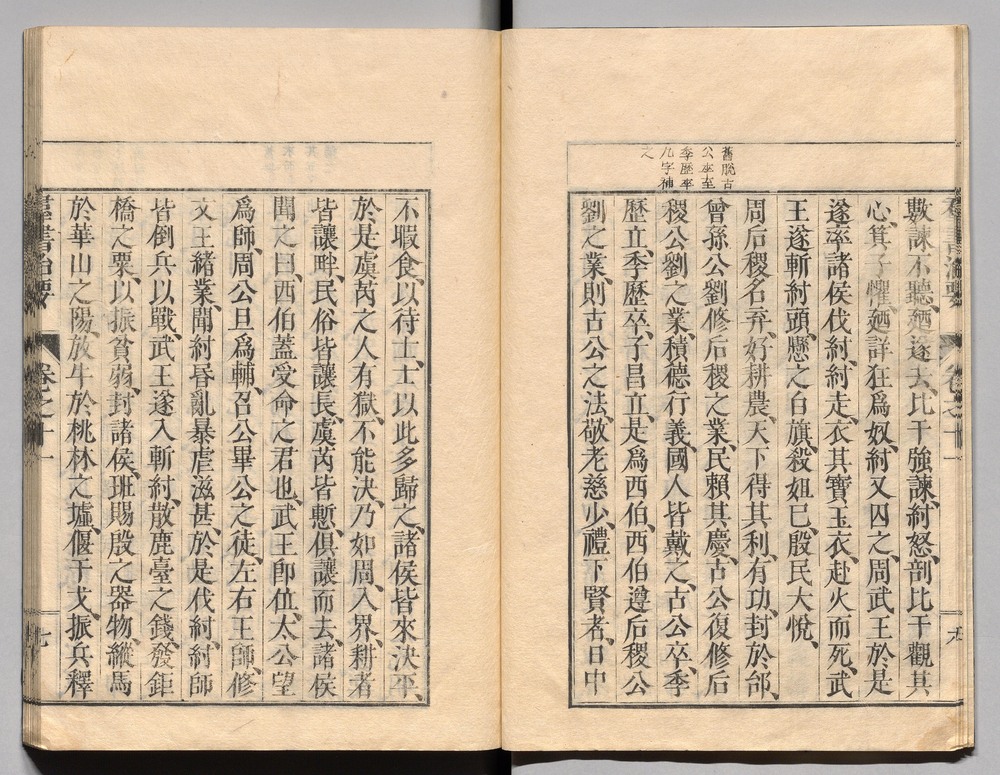 舊脫古
公卒至
季歷卒
九字補
之
數諫不聽廼遂去比干強諫紂怒剖比干觀其
心箕子懼廼詳狂爲奴紂又囚之周武王於是
遂率諸侯伐紂紂走衣其寶玉衣赴火而死武
王遂斬紂頭懸之白旗殺妲己殷民大悅
周后稷名弃好耕農天下得其利有功封於邰
曾孫公劉修后稷之業民賴其慶古公復修后
稷公劉之業積德行義國人皆戴之古公卒季
歷立季歷卒子昌立是爲西伯西伯遵后稷公
劉之業則古公之法敬老慈少禮下賢者日中
不暇食以待士士以此多歸之諸侯皆來決平
於是虞芮之人有獄不能決乃如周入界耕者
皆讓畔民俗皆讓長虞芮皆慙俱讓而去諸侯
聞之曰西伯蓋受命之君也武王卽位太公望
爲師周公旦爲輔召公畢公之徒左右王師修
文王緒業聞紂昏亂暴虐滋甚於是伐紂紂師
皆倒兵以戰武王遂入斬紂散鹿臺之錢發鉅
橋之粟以振貧弱封諸侯班賜殷之器物縱馬
於華山之陽放牛於桃林之墟偃干戈振兵釋
羣書治要 卷之十一 七